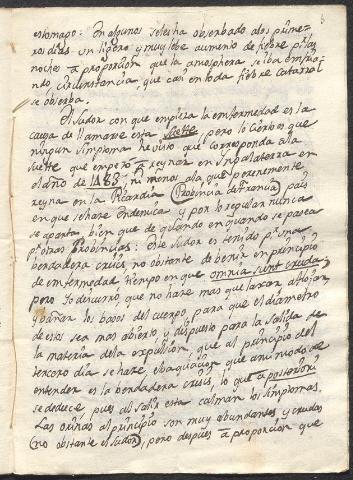 estomago: En algunos se les ha observado a los prime-
ros dias un ligero y muy lebe aumento de fiebre pr. las
noches a proporcion que la atmosphera se iba enfrian-
do circunstancia, que casi en toda fiebre catarral
se observa.
El sudor con que empieza la enfermedad es la
causa de llamarse esta Suette, pero lo cierto es que
ningun simptoma he visto que corresponda a la
Suette que empezó a reynar en Inglaterra en
el año de 1485, ni menos a la que perennemente
reyna en la Picardia (Provincia de Francia) pais
en que se hace Endemica y por lo regular nunca
se aparta, bien que de quando en quando se pasea
pr. otras Probincias: Este sudor es tenido pr. una
berdadera crisis, no obstante de benir en principio
de enfermedad, tiempo en que omnia sunt cruda;
pero Yo discurro, que no hace mas que labar, afloxar,
y bañar los basos del cuerpo, para que el diametro
de estos sea mas abierto y dispuesto para la salida de
la materia de la expulsion, que al principio del
tercero dia se hace, ebaquacion que a mi modo de
entender es la berdadera crisis, lo que a posteriori
se deduce, pues al salir esta calman los simptomas.
Las orinas al principio son muy abundantes y crudas
(no obstante el sudor), pero despues a proporcion que